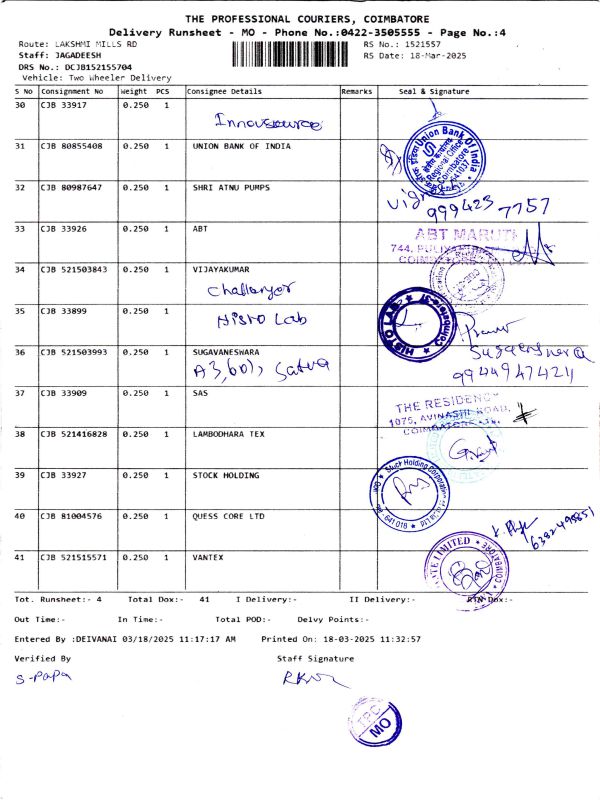 THE PROFESSIONAL COURIERS, COIMBATORE
Delivery Runsheet - MO - Phone No.:0422-3505555 - Page No.:4
Route: LAKSHMI MILLS RD RS No.: 1521557
Staff: JAGADEESH RS Date: 18-Mar-2025
DRS No.: DCJB152155704
Vehicle: Two Wheeler Delivery
S No Consignment No Weight PCS Consignee Details Remarks Seal & Signature
30 CJB 33917 0.250 1
Innovsource
31 CJB 80855408 0.250 1 UNION BANK OF INDIA
Union Bank Of India
Regional Office
Coimbatore
641037
32 CJB 80987647 0.250 1 SHRI ATNU PUMPS
999423 7757
33 CJB 33926 0.250 1 ABT
ABT MARUTI
744,
34 CJB 521503843 0.250 1 VIJAYAKUMAR
Challanyor
35 CJB 33899 0.250 1
Histo Lab
HISTO LAB
Coimbatore-37
36 CJB 521503993 0.250 1 SUGAVANESWARA
A3, 601, Satva
99449 47424
37 CJB 33909 0.250 1 SAS
THE RESIDENCY
1075, AVINASHI ROAD,
COIMBATORE
38 CJB 521416828 0.250 1 LAMBODHARA TEX
39 CJB 33927 0.250 1 STOCK HOLDING
Stock Holding Corporation
641 018
40 CJB 81004576 0.250 1 QUESS CORE LTD
6382498851
41 CJB 521515571 0.250 1 VANTEX
LIMITED
COIMBATORE
Tot. Runsheet:- 4 Total Dox:- 41 I Delivery:- II Delivery:- RTN Dox:-
Out Time:- In Time:- Total POD:- Delvy Points:-
Entered By :DEIVANAI 03/18/2025 11:17:17 AM Printed On: 18-03-2025 11:32:57
Verified By Staff Signature
S-Papa
TPC
MO